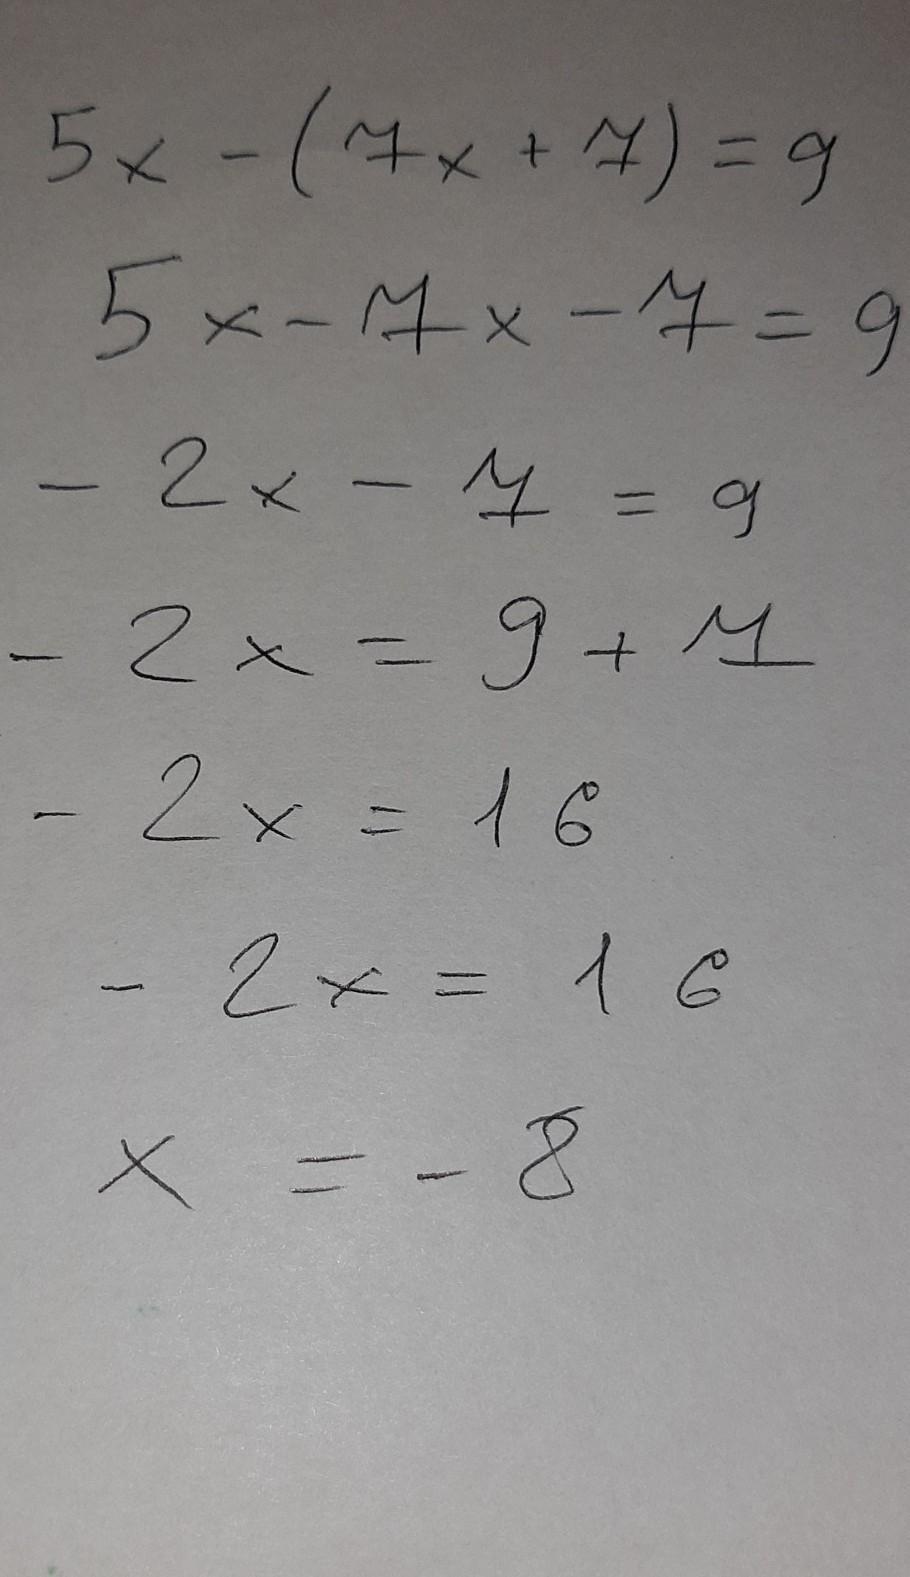 5x - (7x + 7) = 9
5x - 7x - 7 = 9
- 2x - 7 = 9
- 2x = 9 + 7
- 2x = 16
- 2x = 16
x = - 8